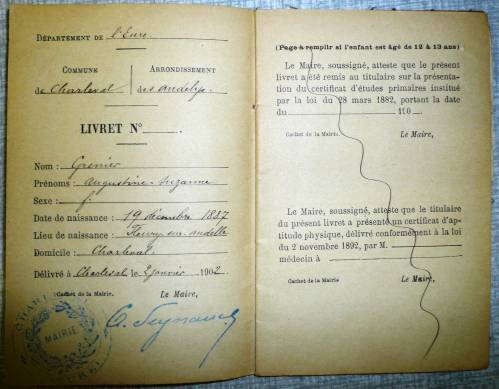 DÉPARTEMENT de l'Eure
COMMUNE
de Charleval
ARRONDISSEMENT
des Andelys
LIVRET N°
Nom : Grenier
Prénoms : Augustine-Suzanne
Sexe : f
Date de naissance : 19 décembre 1887
Lieu de naissance : Fleury-sur-Andelle
Domicile : Charleval
Délivré à Charleval le 2 janvier 1902
Cachet de la Mairie. Le Maire,
MAIRIE
(Page à remplir si l'enfant est âgé de 12 à 13 ans)
Le Maire, soussigné, atteste que le présent
livret a été remis au titulaire sur la présenta-
tion du certificat d'études primaires institué
par la loi du 28 mars 1882, portant la date
du 190 .
Cachet de la Mairie Le Maire,
Le Maire, soussigné, atteste que le titulaire
du présent livret a présenté un certificat d'ap-
titude physique, délivré conformément à la loi
du 2 novembre 1892, par M.
médecin à
Cachet de la Mairie Le Maire,